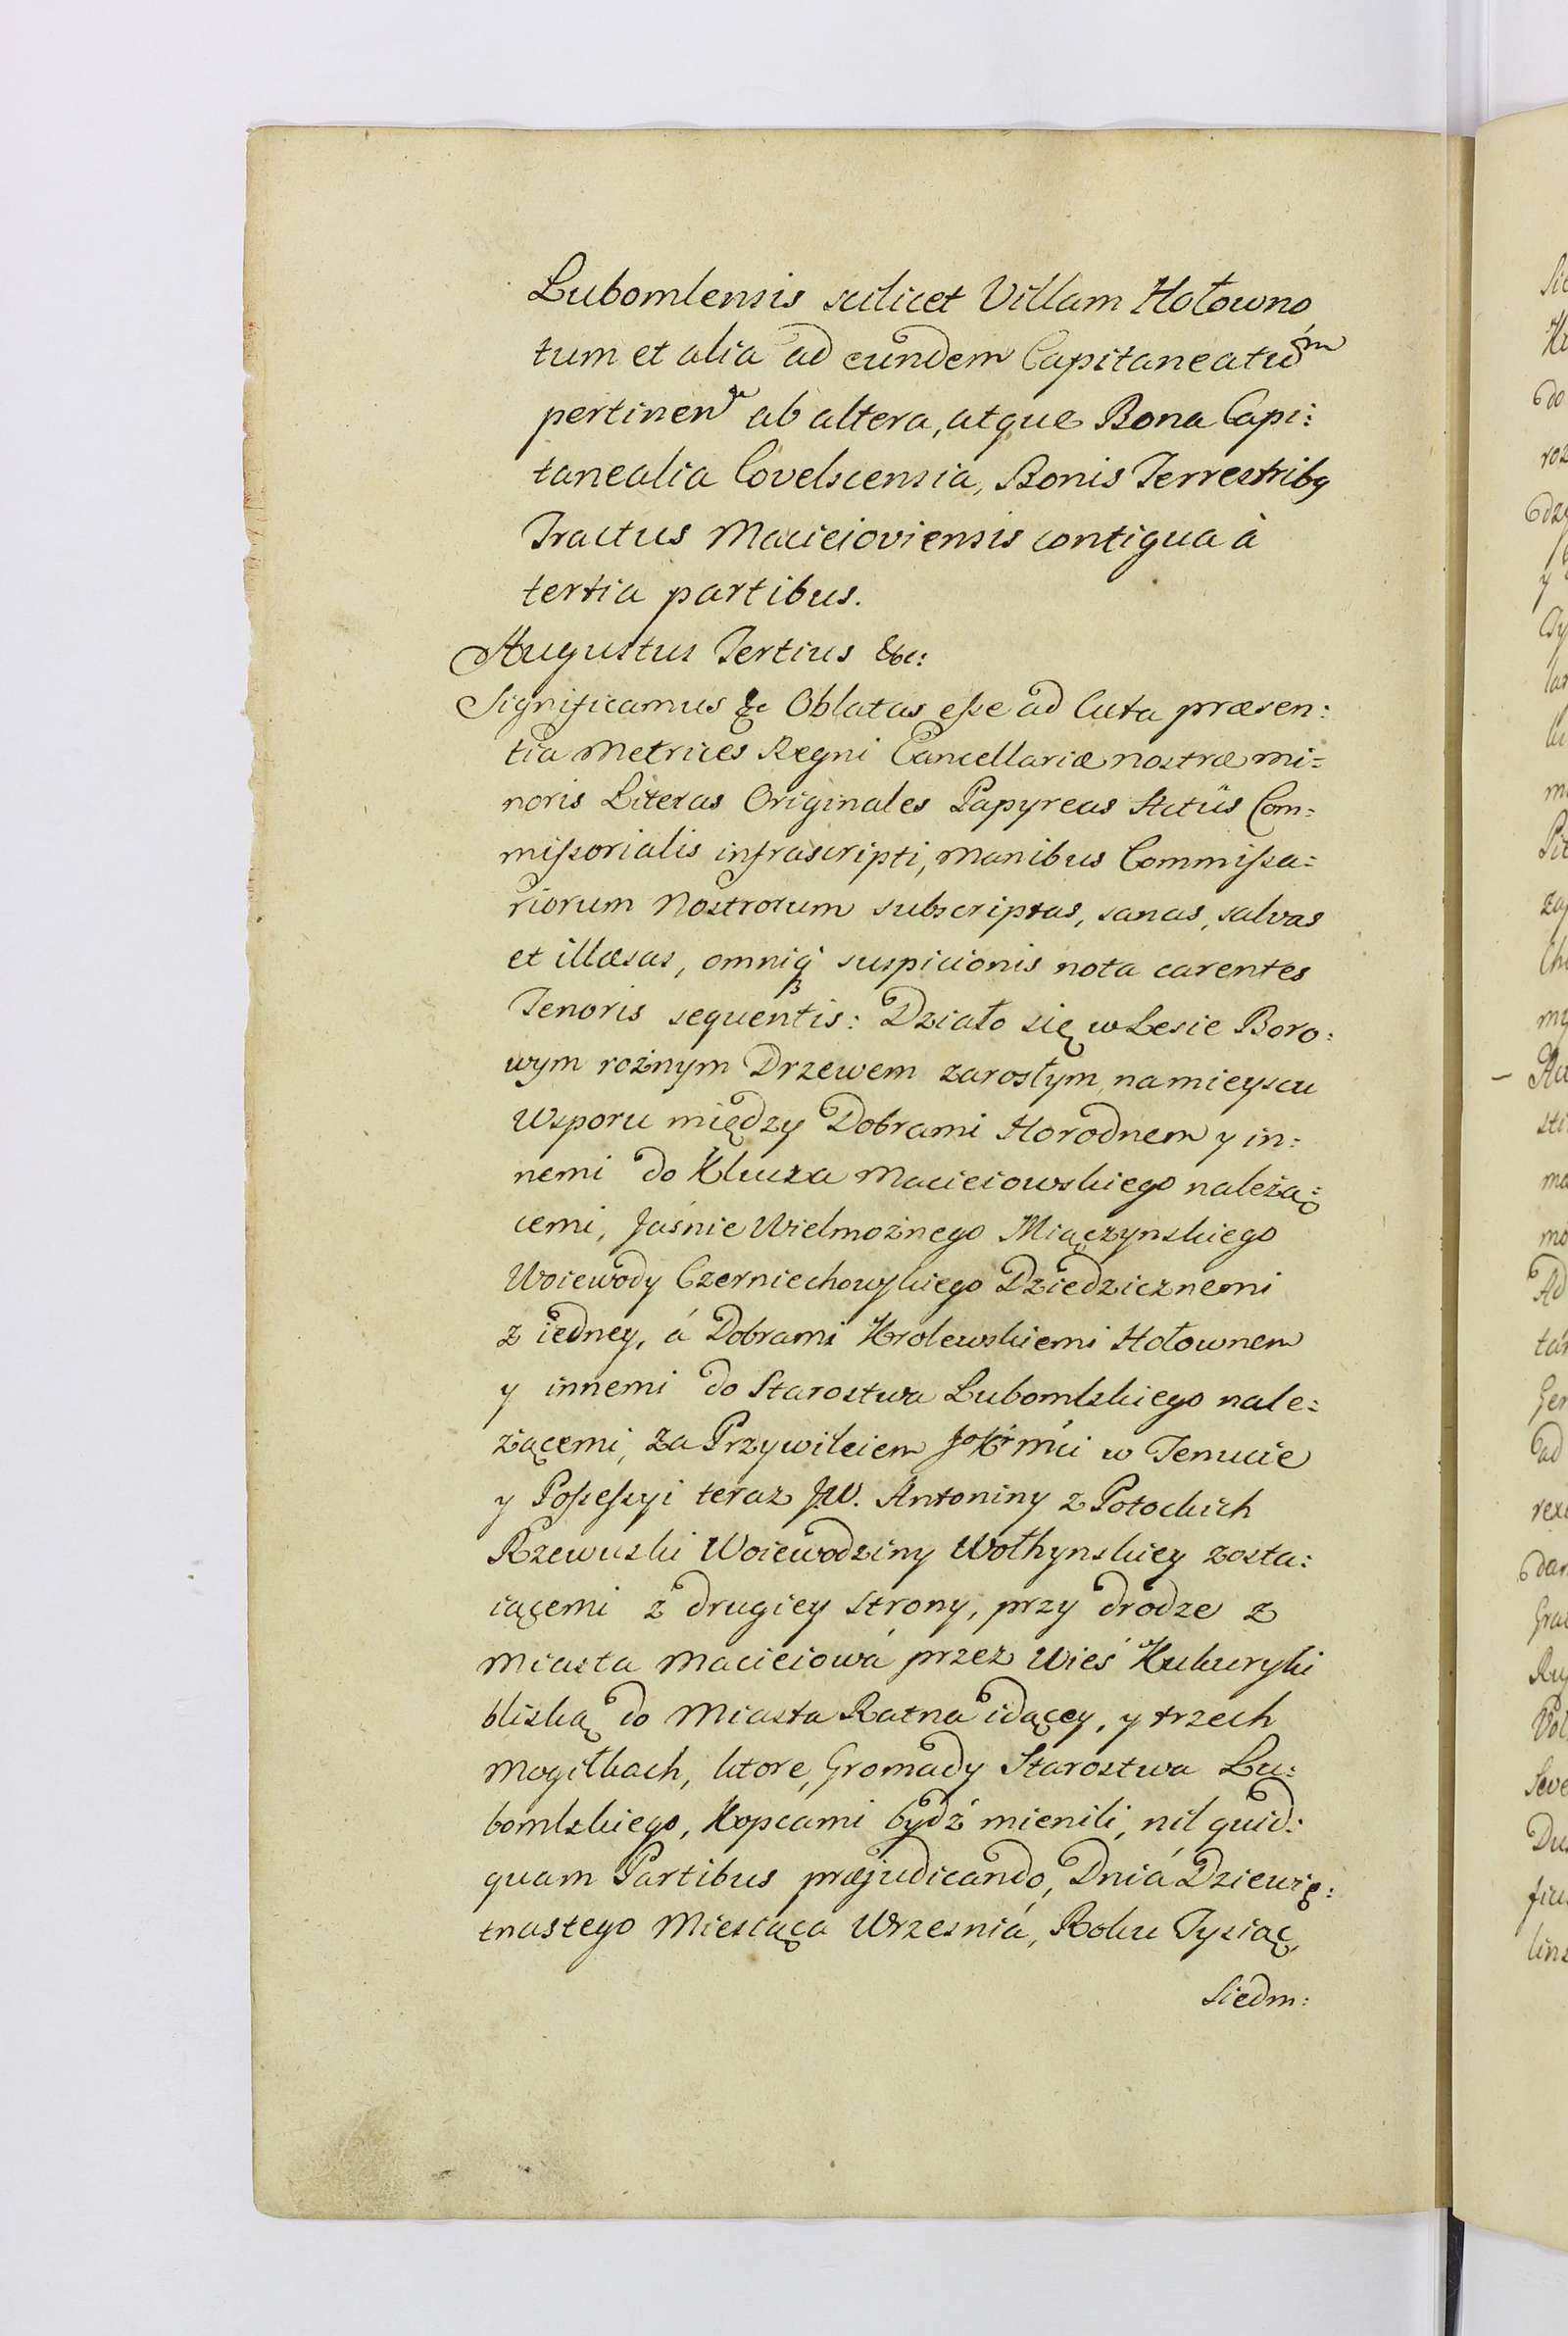 Lubomlensis scilicet Villam Hołowno
tum et alia ad eundem Capitaneatum
pertinen ab altera, atque Bona Capi:
tanealia Covelscensia, Bonis Terrestribq
Tractus Macieioviensis contigua à
tertia partibus.
Augustus Tertius &c:
Significamus &c Oblatas esse ad Acta præsen:
tia Metrices Regni Cancellariæ nostræ mi=
noris Literas Originales Papyreas Actûs Com=
missorialis infrascripti, manibus Commissa=
riorum Nostrorum subscriptas, sanas, salvas
et illæsas, omniq suspicionis nota carentes
Tenoris sequentis: Działo się w Lesie Boro:
wym rożnym Drzewem zarosłym, na mieyscu
Wsporu między Dobrami Horodnem y in:
nemi do Klucza Macieiowskiego należą=
cemi, Jaśnie Wielmożnego Miączynskiego
Woiewody Czerniechowskiego Dziedzicznemi
z iedney, á Dobrami Krolewskiemi Hołownem
y innemi do Starostwa Lubomlskiego nale:
żącemi, za Przywileiem JoKr Mci w Tenucie
y Possessyi teraz JW. Antoniny z Potockich
Rzewuski Woiewodziny Wołhynskiey zosta:
iącemi z drugiey strony, przy drodze z
Miasta Macieiowá przez Wieś Kukuryki
bliską do Miasta Ratna idącey, y trzech
Mogiłkach, ktore, Gromady Starostwa Lu:
bomlskiego, Kopcami bydź mienili, nil quid:
quam Partibus præjudicando, Dniá Dziewię:
tnastego Miesiąca Wrzesniá, Roku Tysiąc,
Siedm: